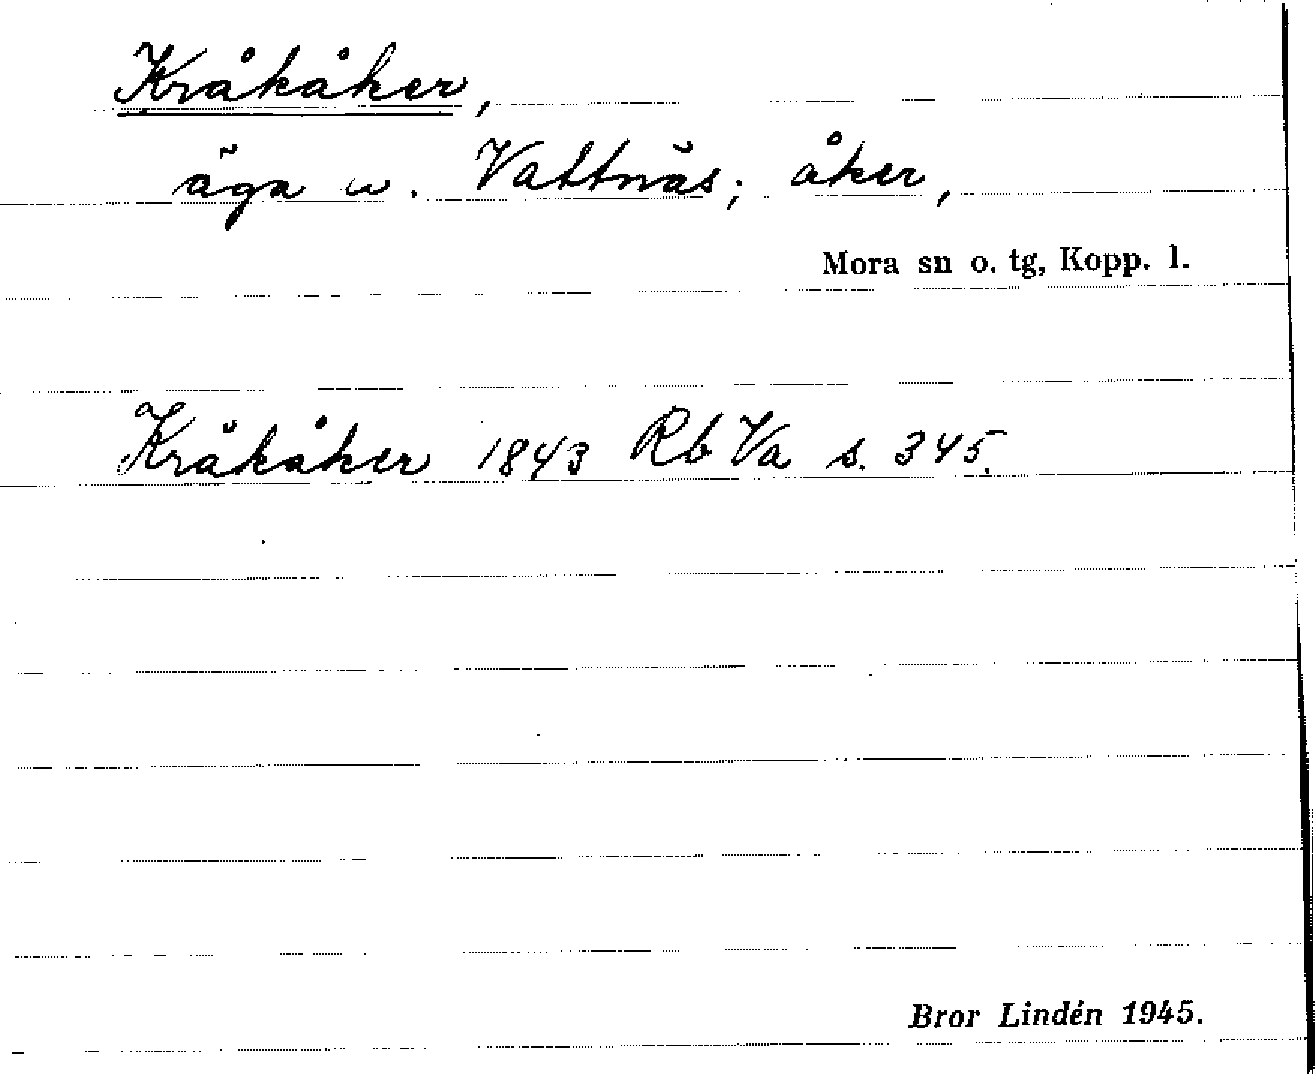 Kråkåker,
äga u. Vattnäs; åker,
Mora sn o. tg, Kopp. l.
Kråkåker 1843 Rb Va s. 345.
Bror Lindén 1945.